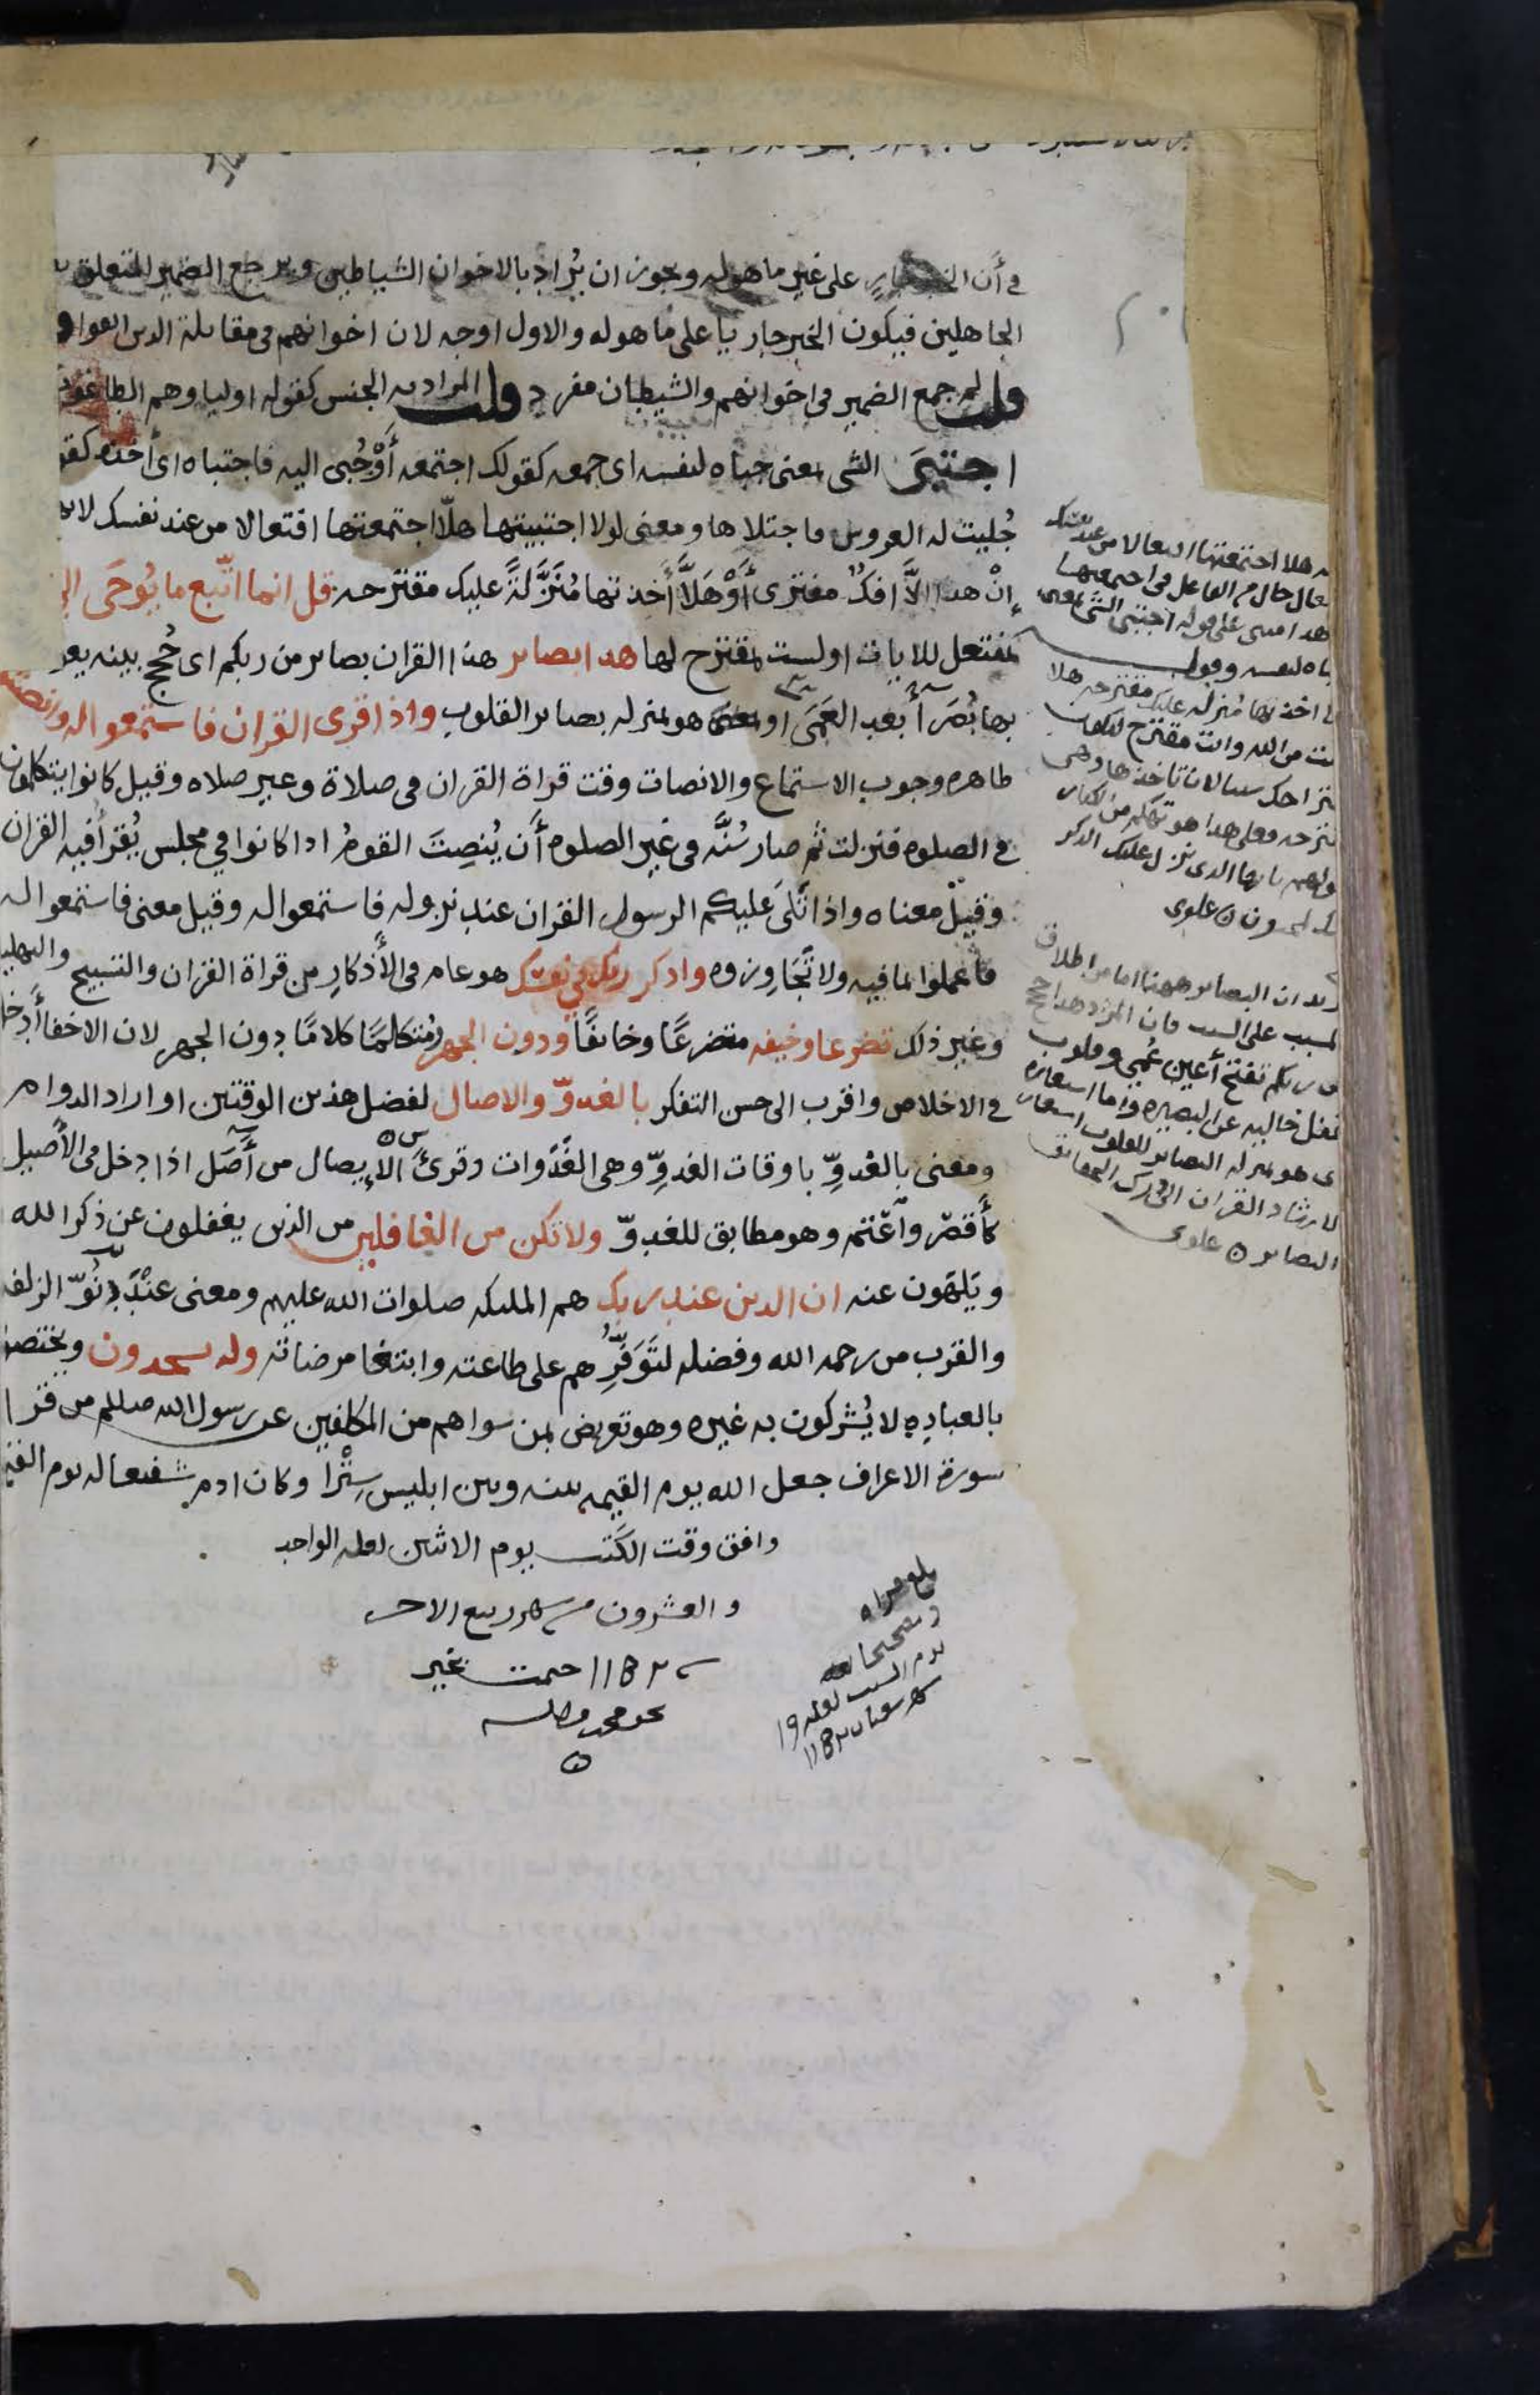 في أن الخبر جارٍ على غير ما هوله ويجوز ان يُراد بالاخوان الشياطين ويرجع الضمير المتعلق به
الجاهلين فيكون الخبر جاريا على ما هوله والاول اوجه لان اخوانهم في مقابلة الدين اتقوا
قلت لم جمع الضمير في اخوانهم والشيطان مفرد قلت المراد به الجنس كقوله اولياوهم الطاغوت
اجتبَى الشي بمعنى جباه لنفسه اى جمعه كقولك اجتمعه أَوْ جُبى اليه فاجتباه اى أخذه كقو
جُليت له العروس فاجتلاها ومعنى لولا اجتبيتها هلّا اجتمعتها افتعالا من عند نفسك لانهم
إنْ هدا الَّا افكٌ مفترى أَوْ هَلَّا أَخذتها مُنَزَّلَةً عليك مقترحه قل انما اتّبع ما يُوحَى الي
بمفتعل للايات اولست بمقترح لها هدا بصاير هذا القران بصاير من ربكم اى حُجج بينه يعو
بها بُصَرَآءَ بعد العَمَى او هو بمنزله بصاير القلوب واذا قرى القران فاستمعوا له وانصتو
ظاهره وجوب الاستماع والانصات وقت قراة القران في صلاة وغير صلاه وقيل كانوا يتكلمون
في الصلوه فنزلت ثم صار سُنَّه في غير الصلوه أَن يُنصِتَ القومُ ادا كانوا في مجلس يُقرأ فيه القران
وقيلْ معناه واذا تَلَى عليكم الرسول القران عند نزوله فاستمعوا له وقيل معنى فاستمعوا له
فاعملوا بما فيه ولا تُجَاوزوه وادكر ربك في نفسك هو عام في الأَذكارِ من قراة القران والتسبيح والتهليل
وغير ذلك تضرعا وخيفه متضرعًا وخائفًا ودون الجهر ومُتكلمًا كلامًا دون الجهر لان الاخفا أَدخل
في الاخلاص واقرب الى حسن التفكر بالغدوّ والاصال لفضل هذين الوقتين او اراد الدوام
ومعنى بالغدوِّ باوقات الغدوِّ وهي الغَدَوات وقرئَ الإيصال من أَصَل اذا دخل في الأصيل
كأَقصَر وأَعْتَم وهو مطابق للغدوّ ولا تكن من الغافلين من الذين يغفلون عن ذكر الله
ويَلهَون عنه ان الدين عند ربك هم المليكه صلوات الله عليهم ومعنى عنْدَ دُنُوّ الزلفه
والقرب من رحمه الله وفضله لتَوَفُّرِهم على طاعته وابتغا مرضاته وله يسجدون ويختصو
بالعباده لا يُشركون به غيره وهو تعريض بمن سواهم من المكلفين عن رسول الله صللم من قرا
سورة الاعراف جعل الله يوم القيمه بينه وبين ابليس سِتْرًا وكان ادم شفيعا له يوم القيمه
وافق وقت الكَتب يوم الاثنين لعله الواحد
والعشرون من شهر ربيع الاخر
ختمت بخير
بلغ قراه
وتصحيحا
يوم السبت لعله ١٩
شهر شعبان
هلا اجتمعتها افتعالا من عند نفسك
حال من الفاعل في اجتمعتها
على قوله اجتبى الشى بمعنى
باه لنفسه وقوله
اخذتها مُنزله عليك مقترحه هلا
من الله وانت مقترح
تاخذها وهي
الدى نزل عليك الدكر
علوى
ان البصاير ههنا اما من اطلاق
المسبب على السبب فان المراد هدا حجج
من ربكم تفتح أعين عُمي وقلوب
غفل خاليه عن البصيره واما استعاره
هو بمنزله البصاير للقلوب استعار
لارشاد القران الى درك الحقائق
البصاير علوى